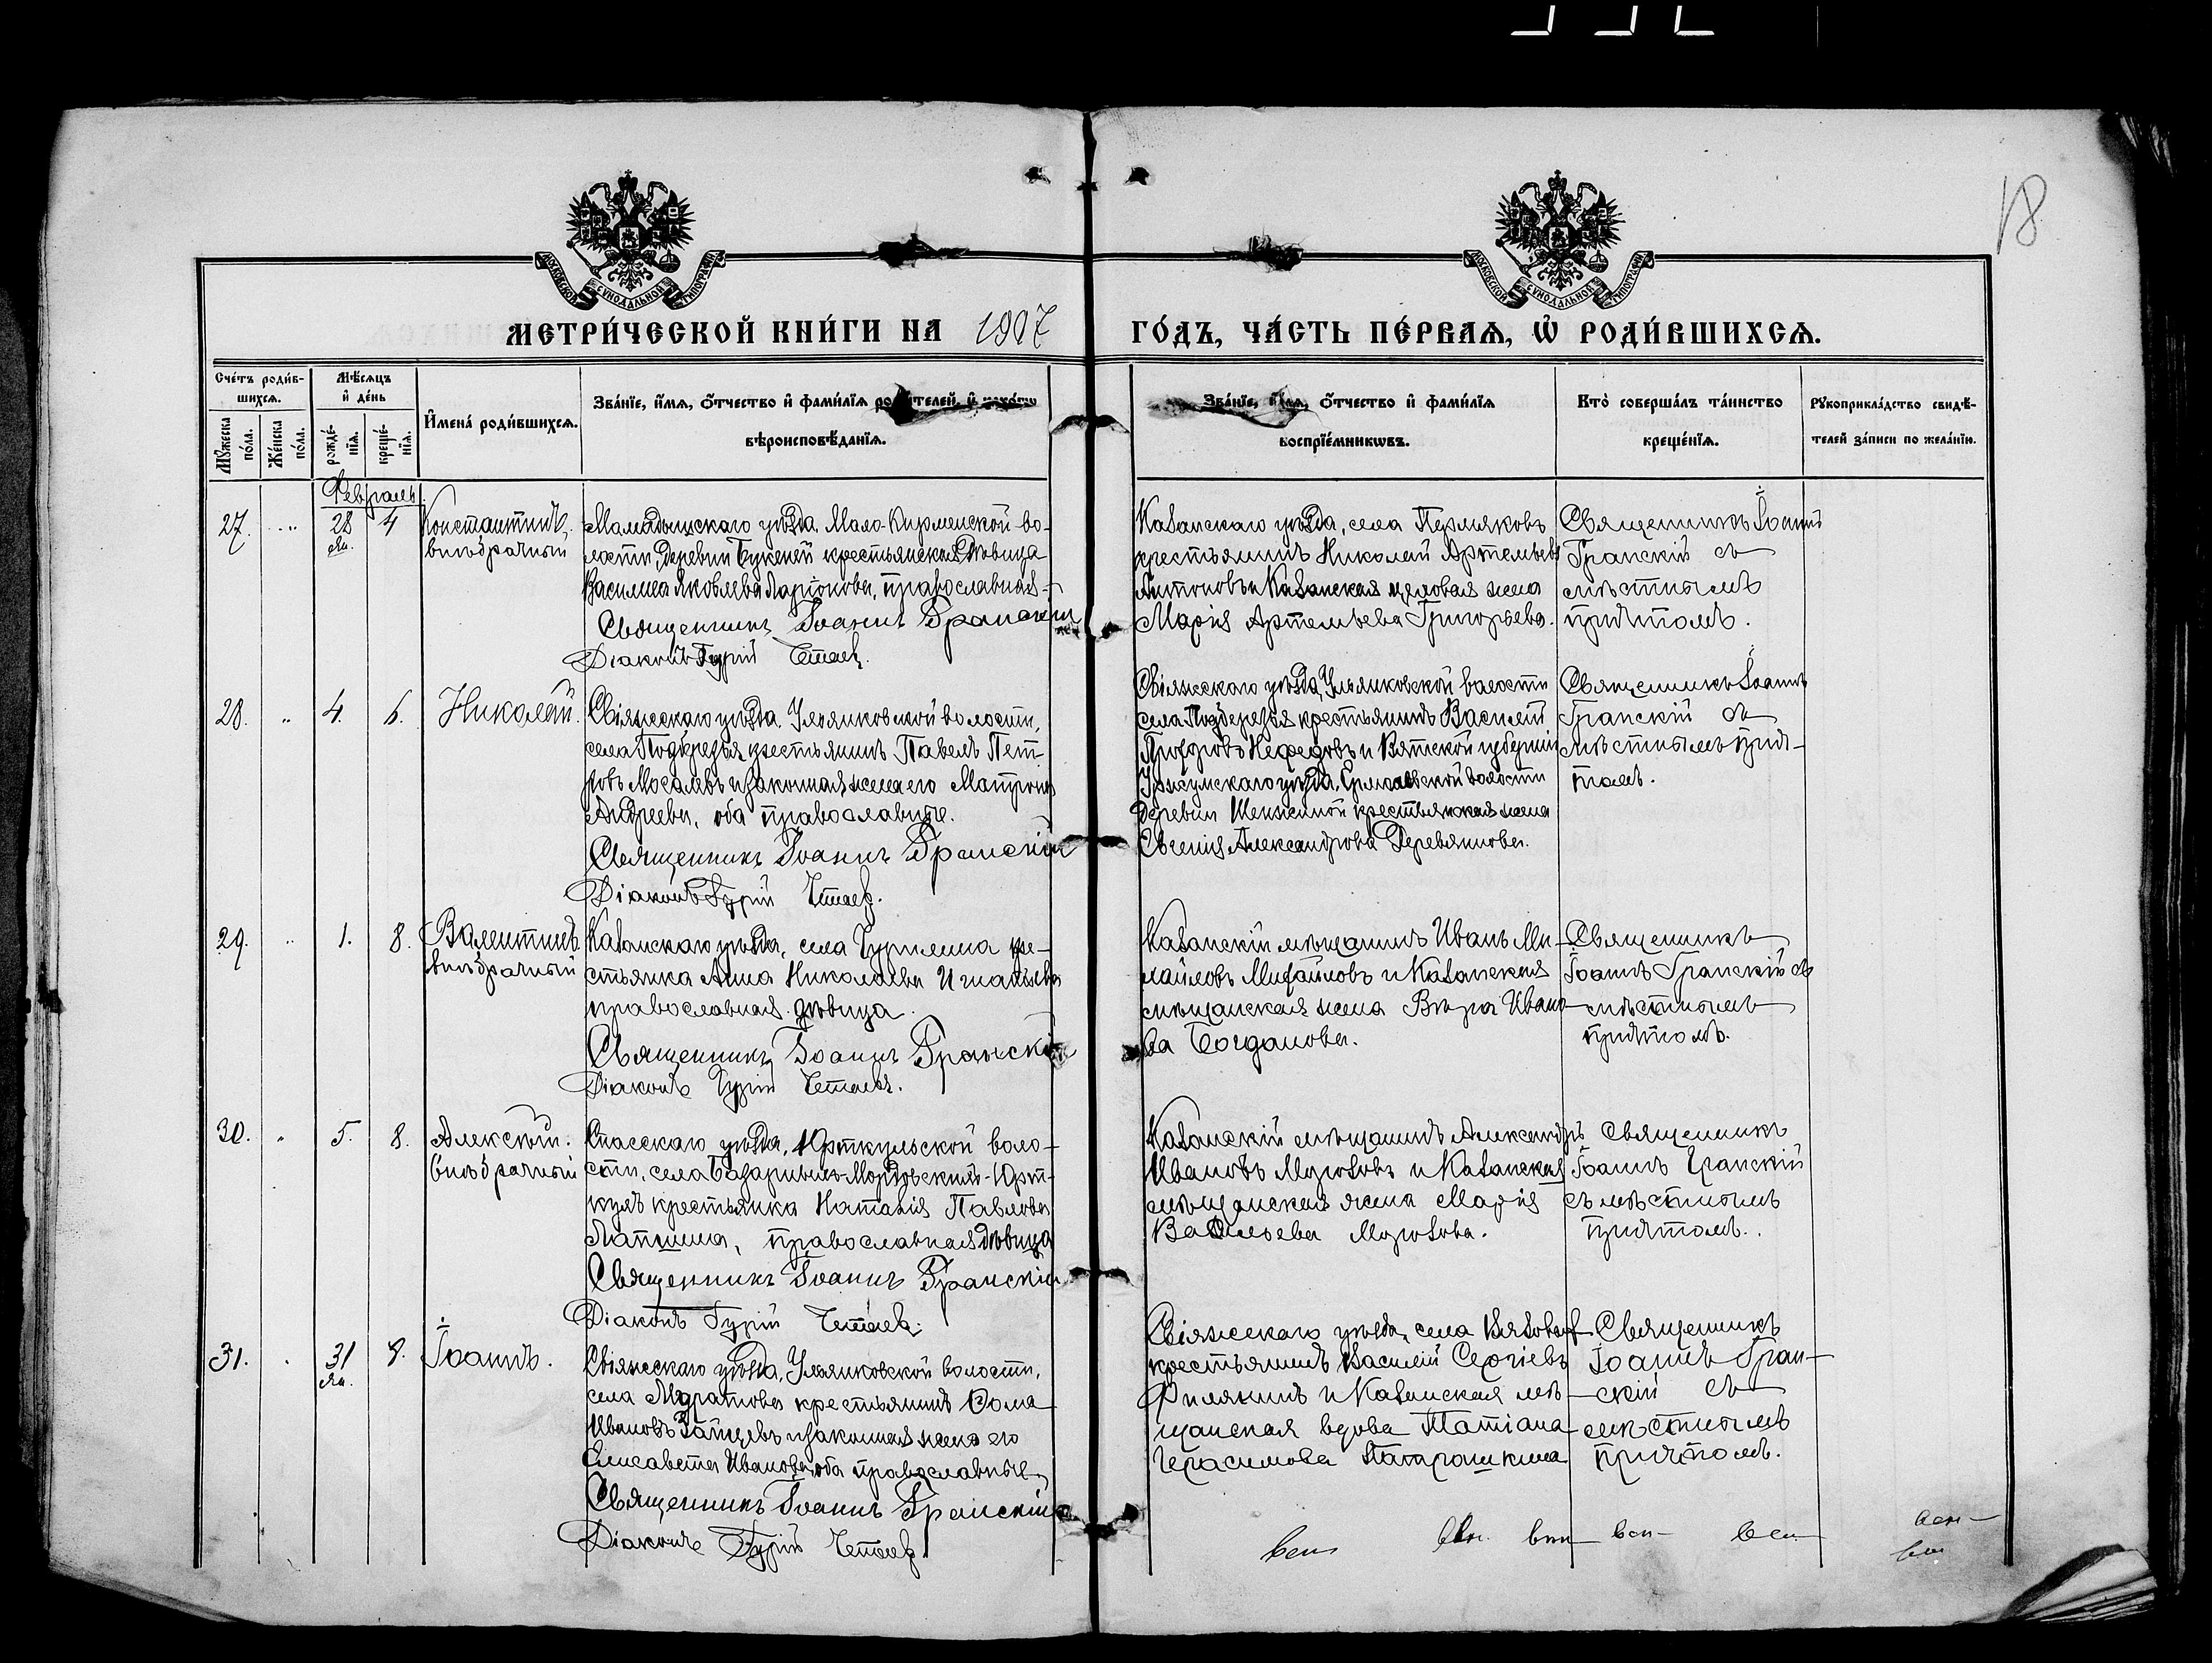 18
МОСКОВСКОЙ СѴНОДАЛЬНОЙ ТИПОГРАФІИ
МОСКОВСКОЙ СѴНОДАЛЬНОЙ ТИПОГРАФІИ
МЕТРИ́ЧЕСКОЙ КНИ́ГИ НА 1907 ГО́ДЪ, ЧА́СТЬ ПЕ́РВАѦ, Ѡ҆ РОДИ́ВШИХСѦ.
Сче́тъ роди́в-
шихсѧ.
Мꙋ́жеска по́ла.
Же́нска по́ла.
Мѣ́сѧцъ
и҆ де́нь
рожде́-
нїѧ.
креще́-
нїѧ.
И҆мена̀ роди́вшихсѧ.
Зва́нїе, и҆́мѧ, ѻ҆́тчество и҆ фами́лїѧ родителей, и҆
вѣроисповѣ́данїѧ.
Зва́нїе, и҆́мѧ, ѻ҆́тчество и҆ фами́лїѧ
воспрїе́мникѡвъ.
Кто̀ соверша́лъ та́инство
креще́нїѧ.
Рꙋкоприкла́дство свидѣ́-
телей за́писи по жела́нїю.
Февраль.
27.
28
Ян.
4
Константинъ,
внѣбрачный
Мамадышскаго уѣзда, Мало-Кирменской во-
лости, деревни крестьянская дѣвица
Василиса Яковлева Ларіонова, православная.
Священникъ Іоаннъ Гранскій
Діаконъ Гурій
Казанскаго уѣзда, села Пермяковъ
крестьянинъ Николай Артемьевъ
Антоновъ и Казанская цеховая жена
Марія Артемьева Григорьева.
Священникъ Іоаннъ
Гранскій съ
мѣстнымъ
причтомъ.
28.
4.
6.
Николай.
Свіяжскаго уѣзда, Ульянковской волости,
села Подберезья крестьянинъ Павелъ Пет-
ровъ и законная жена его Матрона
Андреева, оба православные.
Священникъ Іоаннъ Гранскій
Діаконъ Гурій
Свіяжскаго уѣзда, Ульянковской волости
села Подберезья крестьянинъ Василій
Нефедовъ и Вятской губерніи
Уржумскаго уѣзда, волости
деревни крестьянская жена
Евгенія Александрова Деревянкова.
Священникъ Іоаннъ
Гранскій съ
мѣстнымъ прич-
томъ.
29.
1.
8.
Валентинъ
внѣбрачный
Казанскаго уѣзда, села Чурилина кре-
стьянка Анна Николаева Игнатьева
православная дѣвица.
Священникъ Іоаннъ Гранскій
Діаконъ Гурій
Казанскій мѣщанинъ Иванъ Ми-
хайловъ Михайловъ и Казанская
мѣщанская жена Вѣра Ивано-
ва Богданова.
Священникъ
Іоаннъ Гранскій съ
мѣстнымъ
причтомъ.
30.
5.
8.
Алексѣй.
внѣбрачный
Спасскаго уѣзда, Юрткульской воло-
сти, села Мордовскихъ-Юрт-
куль крестьянка Наталія Павлова
Лапшина, православная дѣвица
Священникъ Іоаннъ Гранскій
Діаконъ Гурій
Казанскій мѣщанинъ Александръ
Ивановъ Морозовъ и Казанская
мѣщанская жена Марія
Васильева Морозова.
Священникъ
Іоаннъ Гранскій
съ мѣстнымъ
причтомъ.
31.
31
Ян.
8.
Іоаннъ.
Свіяжскаго уѣзда, Ульянковской волости,
села Муратова крестьянинъ Ѳома
Ивановъ Зайцевъ и законная жена его
Елисавета Иванова, оба православные
Священникъ Іоаннъ Гранскій
Діаконъ Гурій
Свіяжскаго уѣзда, села
крестьянинъ Василій Сергіевъ
Филякинъ и Казанская мѣ-
щанская вдова Татіана
Герасимова Патрошкина
Священникъ
Іоаннъ Гран-
скій съ
мѣстнымъ
причтомъ.